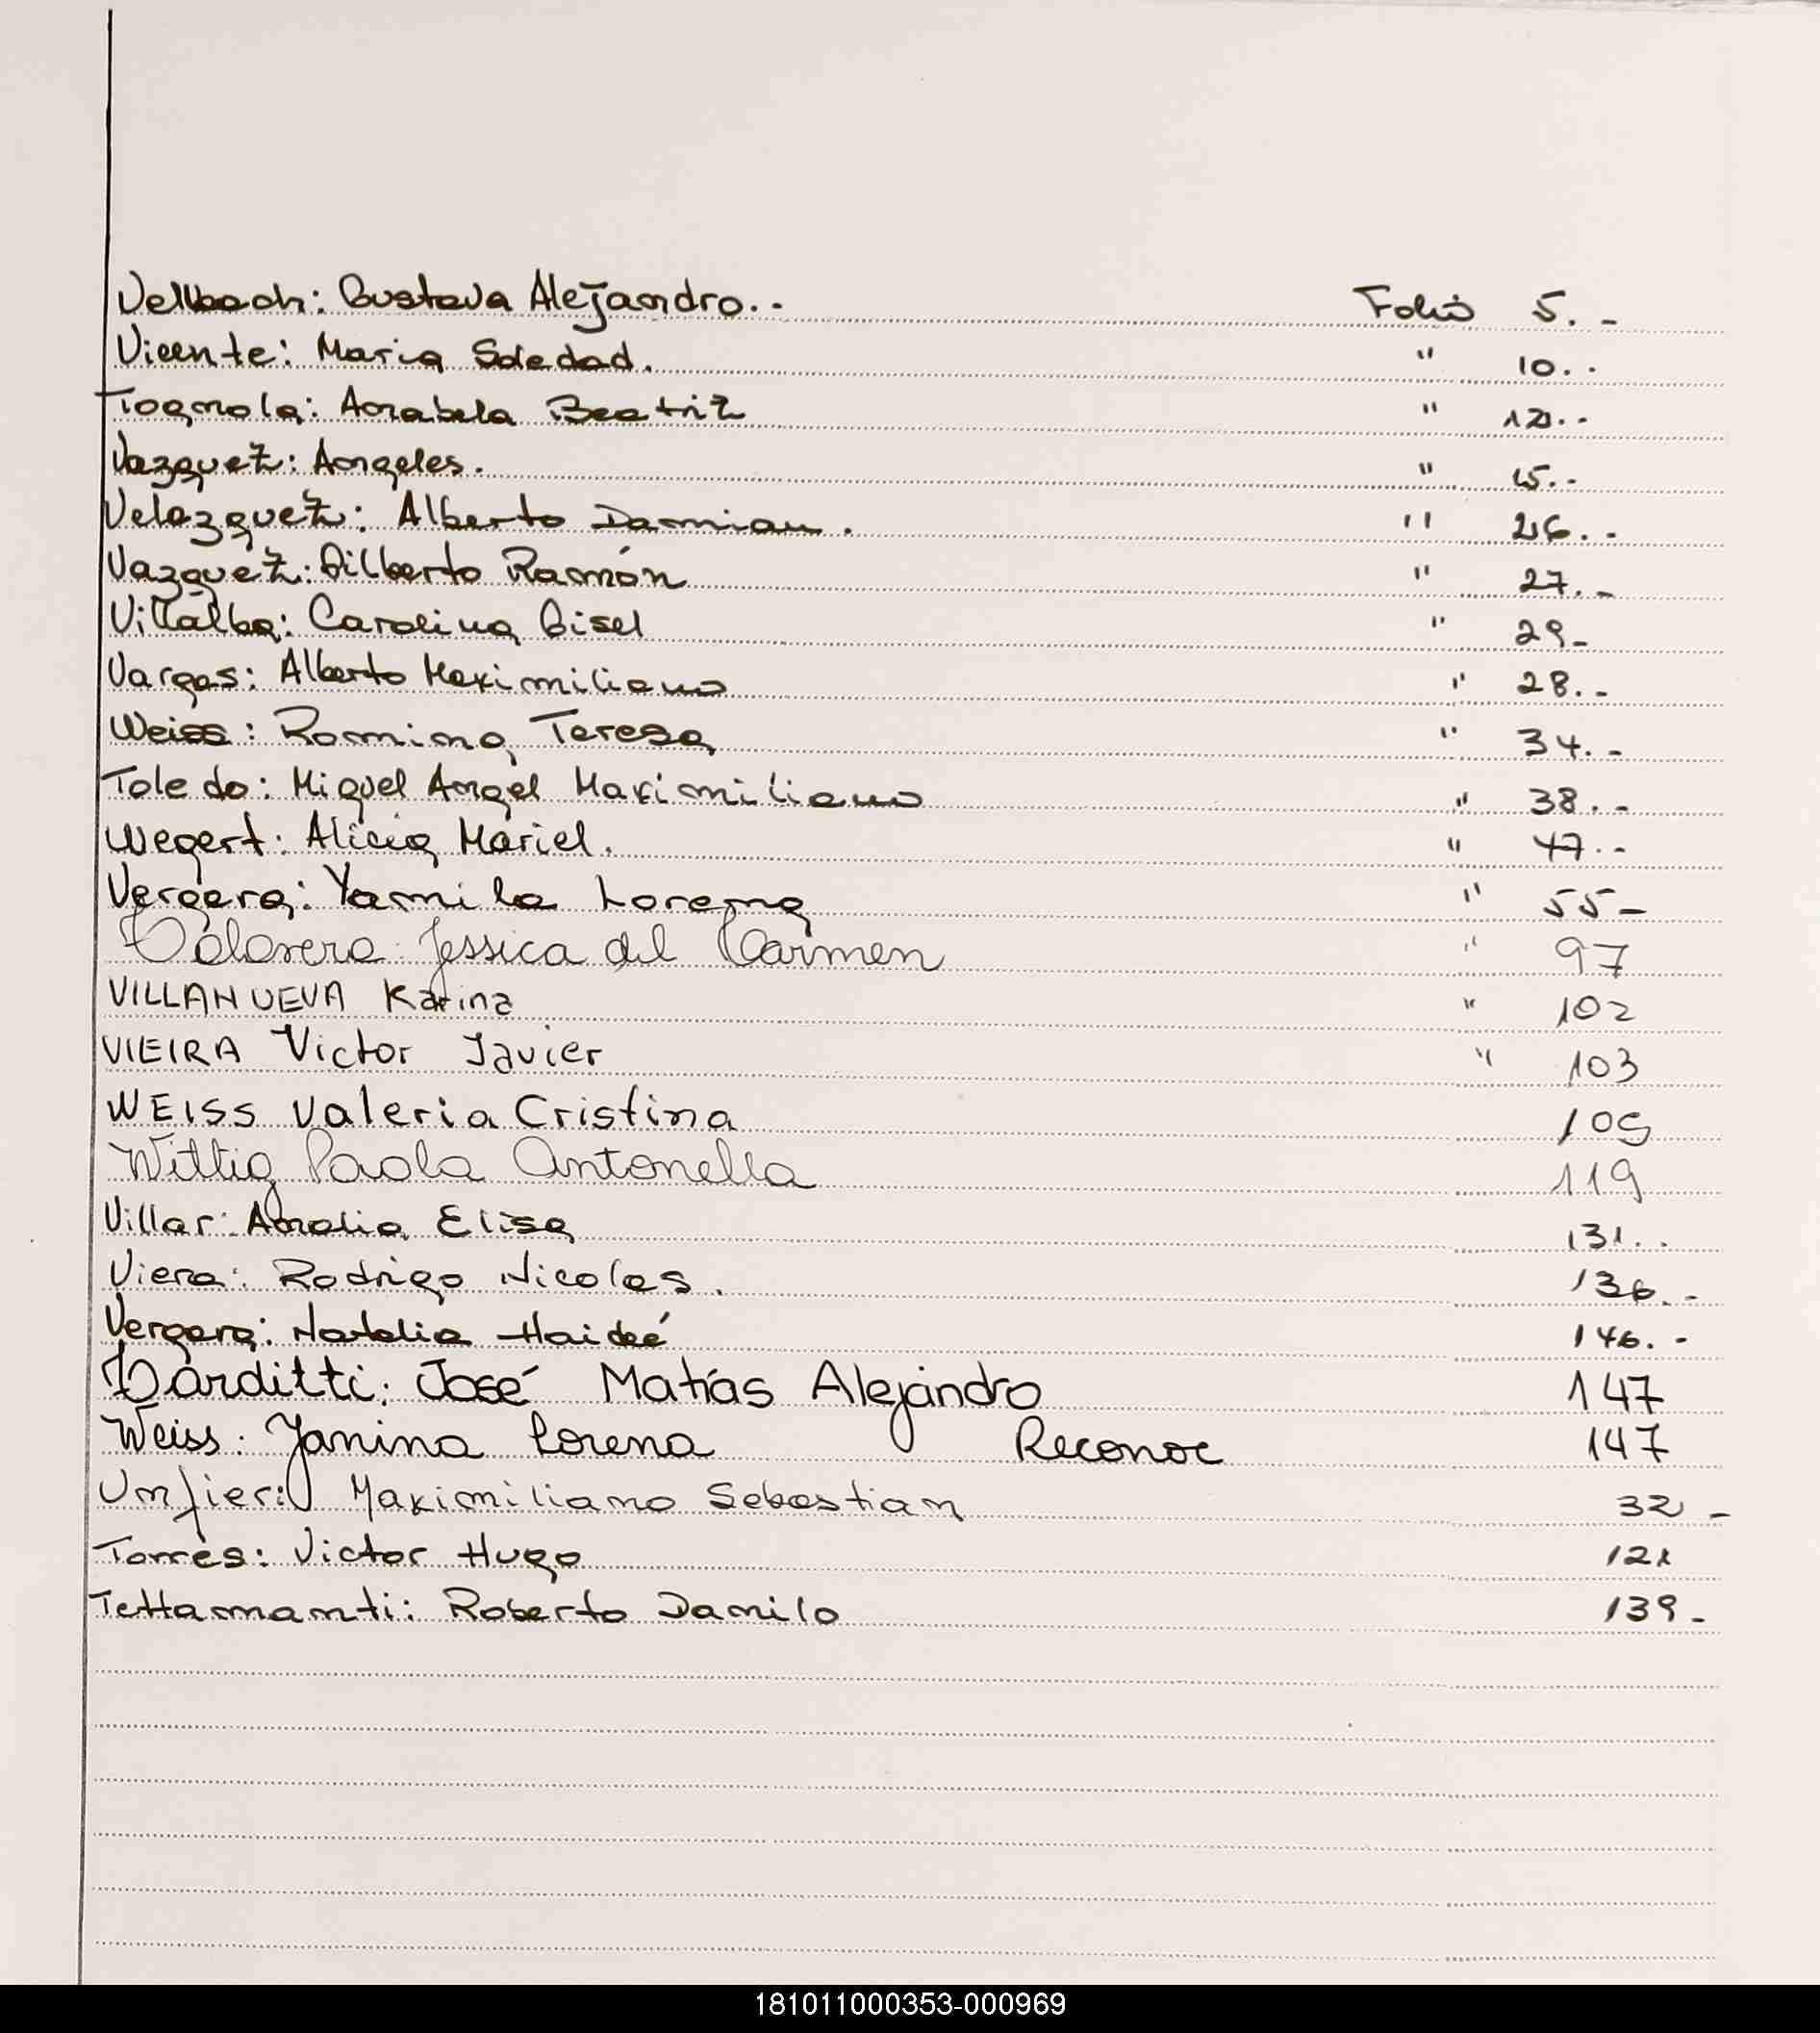 Vellbach: Gustavo Alejandro.. Folio 5.-
Vicente: Maria Soledad. " 10..
Tognola: Anabela Beatriz " 12..
Vazquez: Angeles. " 15..
Velazquez: Alberto Damian. " 26..
Vazquez: Gilberto Ramón " 27.-
Villalba: Carolina Gisel " 29-
Vargas: Alberto Maximiliano " 28..
Weiss: Romina Teresa " 34.-
Toledo: Miguel Angel Maximiliano " 38.-
Wegert: Alicia Mariel. " 47..
Vergara: Yamila Lorena " 55-
Talavera: Jessica del Carmen " 97
VILLANUEVA Karina " 102
VIEIRA Victor Javier " 103
WEISS Valeria Cristina 105
Wittig Paola Antonella 119
Villar: Amalia Elisa 131..
Viera: Rodrigo Nicolas. 136.-
Vergara: Natalia Haideé 146.-
Tarditti: José Matías Alejandro 147
Weiss: Yanina Lorena Reconoc 147
Maximiliano Sebastian 32-
Torres: Victor Hugo 121
Tettamanti: Roberto Danilo 139-
181011000353-000969